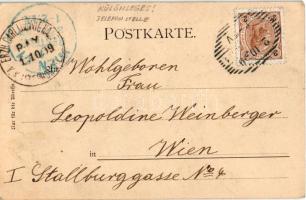 KÜLÖNLEGES!
TELEFON STELLE
POSTKARTE.
Wohlgeboren
Frau
Leopoldine Weinberger
in Wien
I Stallburggasse No 4
Nur für die Adresse